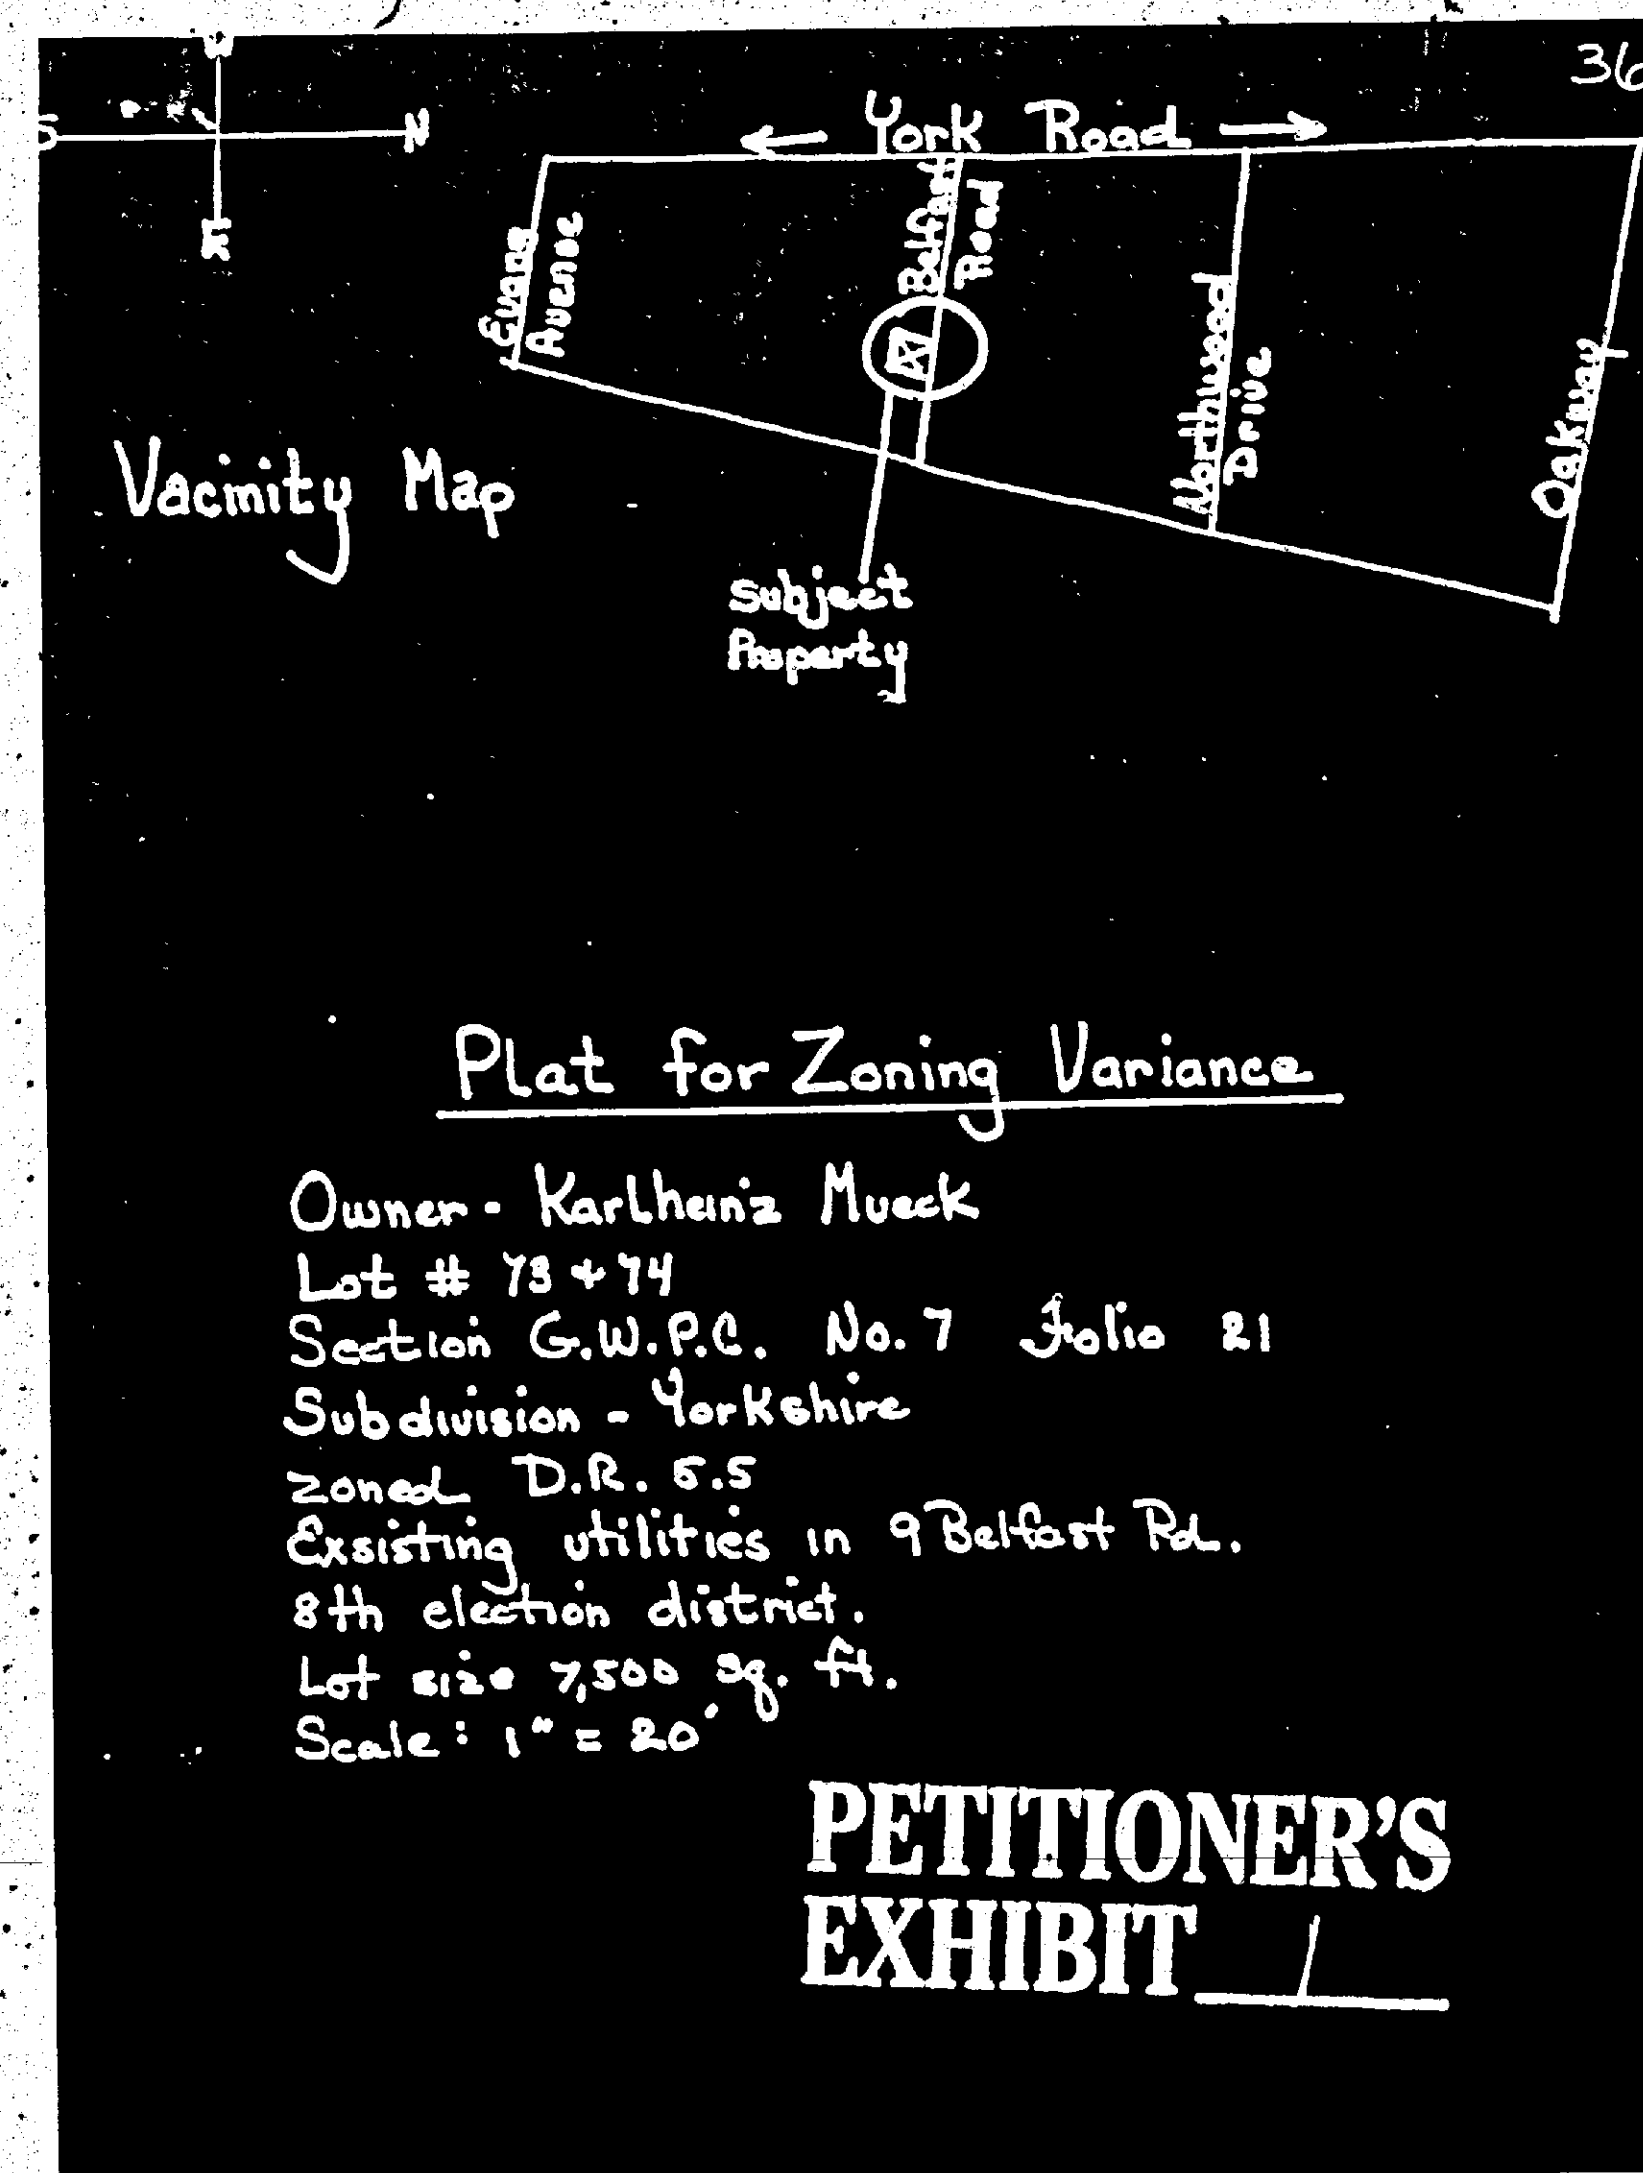 36
W
S
N
E
← York Road →
Evans
Avenue
Belfast
Road
Northwood
Drive
Oakway
Vacinity Map
Subject
Property
Plat for Zoning Variance
Owner - Karlheinz Mueck
Lot # 73 + 74
Section G.W.P.C. No. 7 Folio 21
Subdivision - Yorkshire
Zoned D.R. 5.5
Exsisting utilities in 9 Belfast Rd.
8th election district.
Lot size 7,500 sq. ft.
Scale: 1" = 20'
PETITIONER'S
EXHIBIT 1